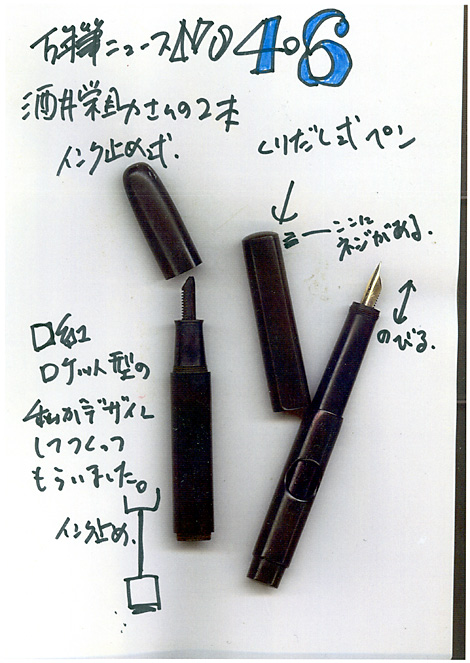 万年筆ニュースNO 406
酒井栄助さんの2本
インク止め式.
くりだし式ペン
ここに
ネジがある.
のびる.
口紅
ロケット型の
私がデザインし
してつくって
もらいました。
インク止め.